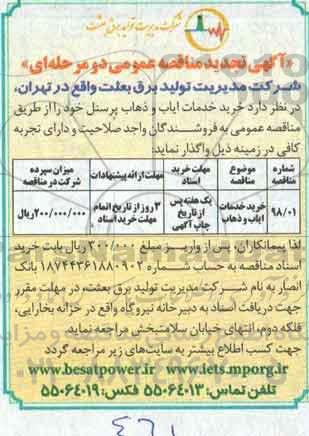 شرکت مدیریت تولید برق بعثت
«آگهی تجدید مناقصه عمومی دو مرحله‌ای»
شرکت مدیریت تولید برق بعثت واقع در تهران،
در نظر دارد خرید خدمات ایاب و ذهاب پرسنل خود را از طریق
مناقصه عمومی به فروشندگان واجد صلاحیت و دارای تجربه
کافی در زمینه ذیل واگذار نماید:
شماره مناقصه | موضوع مناقصه | مهلت خرید اسناد | مهلت ارائه پیشنهادات | میزان سپرده شرکت در مناقصه
98/01 | خرید خدمات ایاب و ذهاب | یک هفته پس از تاریخ چاپ آگهی | 3 روز از تاریخ اتمام مهلت خرید اسناد | 200/000/000 ریال
لذا پیمانکاران، پس از واریز مبلغ 300/000 ریال بابت خرید
اسناد مناقصه به حساب شماره 18744361880902 بانک
انصار به نام شرکت مدیریت تولید برق بعثت، در مهلت مقرر
جهت دریافت اسناد به دبیرخانه نیروگاه واقع در خزانه بخارایی،
فلکه دوم، انتهای خیابان سلامتبخش مراجعه نماید.
جهت کسب اطلاع بیشتر به سایت‌های زیر مراجعه گردد
www.besatpower.ir www.iets.mporg.ir
تلفن تماس: 55064013 فکس: 55064019
461